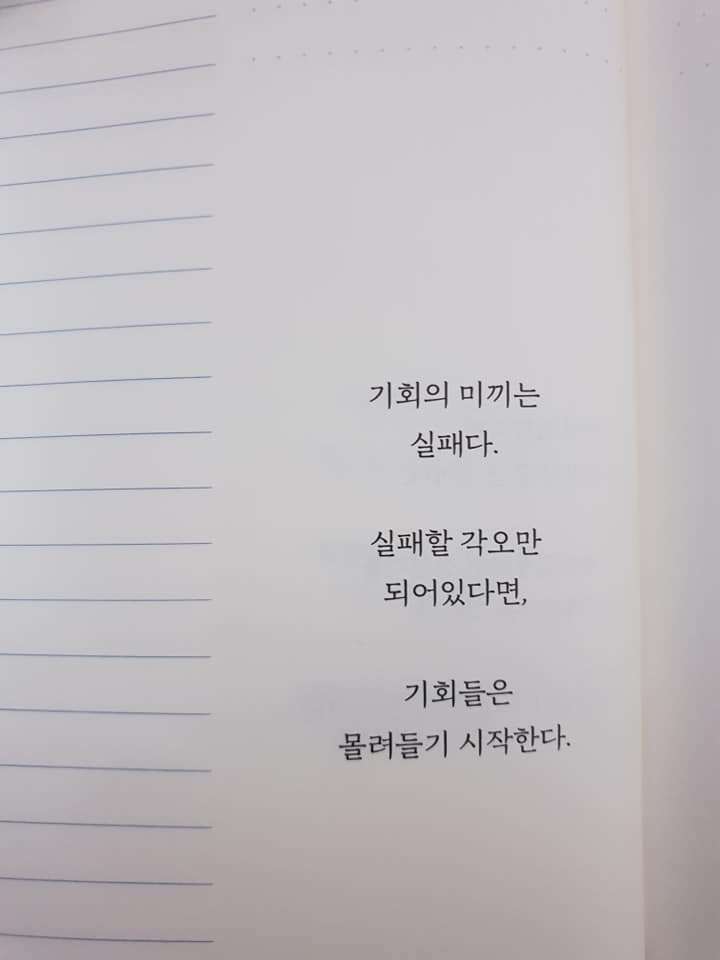 기회의 미끼는
실패다.
실패할 각오만
되어있다면,
기회들은
몰려들기 시작한다.